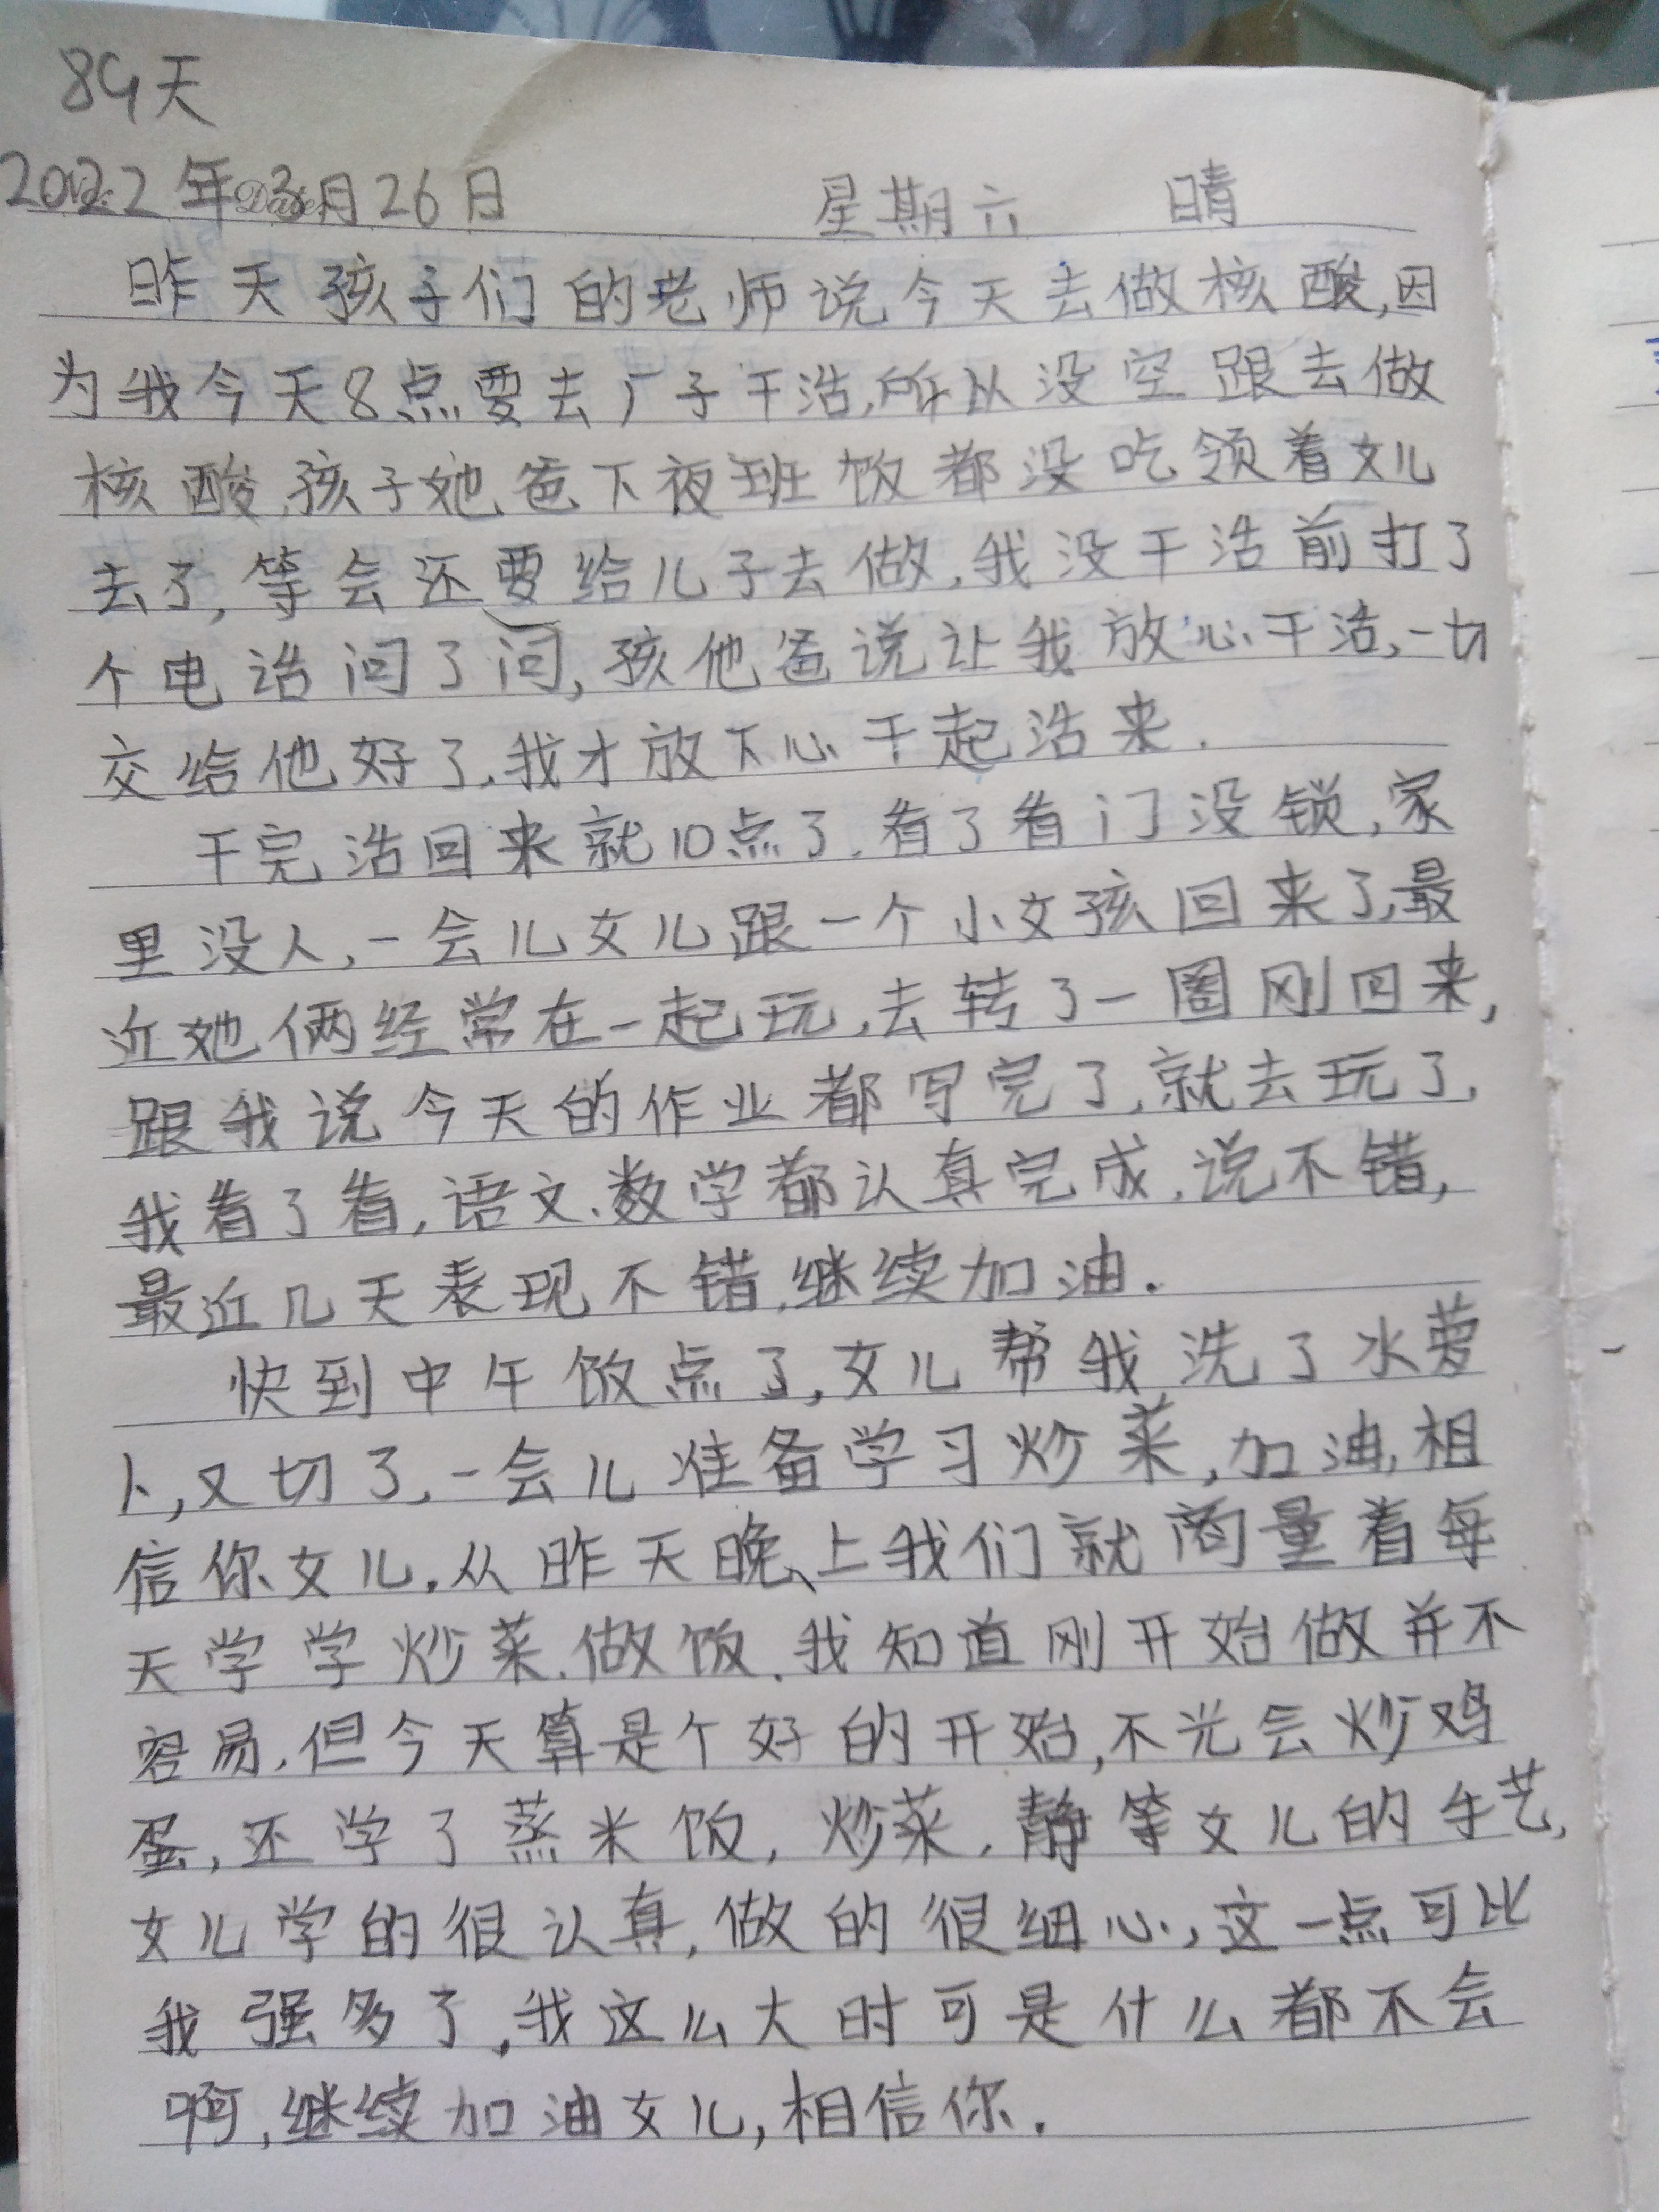 89天
2022年3月26日 星期六 晴
昨天孩子们的老师说今天去做核酸,因
为我今天8点要去厂子干活,所以没空跟去做
核酸,孩子她爸下夜班饭都没吃领着女儿
去了,等会还要给儿子去做,我没干活前打了
个电话问了问,孩他爸说让我放心干活,一切
交给他好了,我才放下心干起活来.
干完活回来就10点了,看了看门没锁,家
里没人,一会儿女儿跟一个小女孩回来了,最
近她俩经常在一起玩,去转了一圈刚回来,
跟我说今天的作业都写完了,就去玩了,
我看了看,语文、数学都认真完成,说不错,
最近几天表现不错,继续加油.
快到中午饭点了,女儿帮我洗了水萝
卜,又切了,一会儿准备学习炒菜,加油,相
信你女儿.从昨天晚上我们就商量着每
天学学炒菜.做饭.我知道刚开始做并不
容易.但今天算是个好的开始,不光会炒鸡
蛋,还学了蒸米饭,炒菜.静等女儿的手艺,
女儿学的很认真,做的很细心,这一点可比
我强多了,我这么大时可是什么都不会
啊,继续加油女儿,相信你.